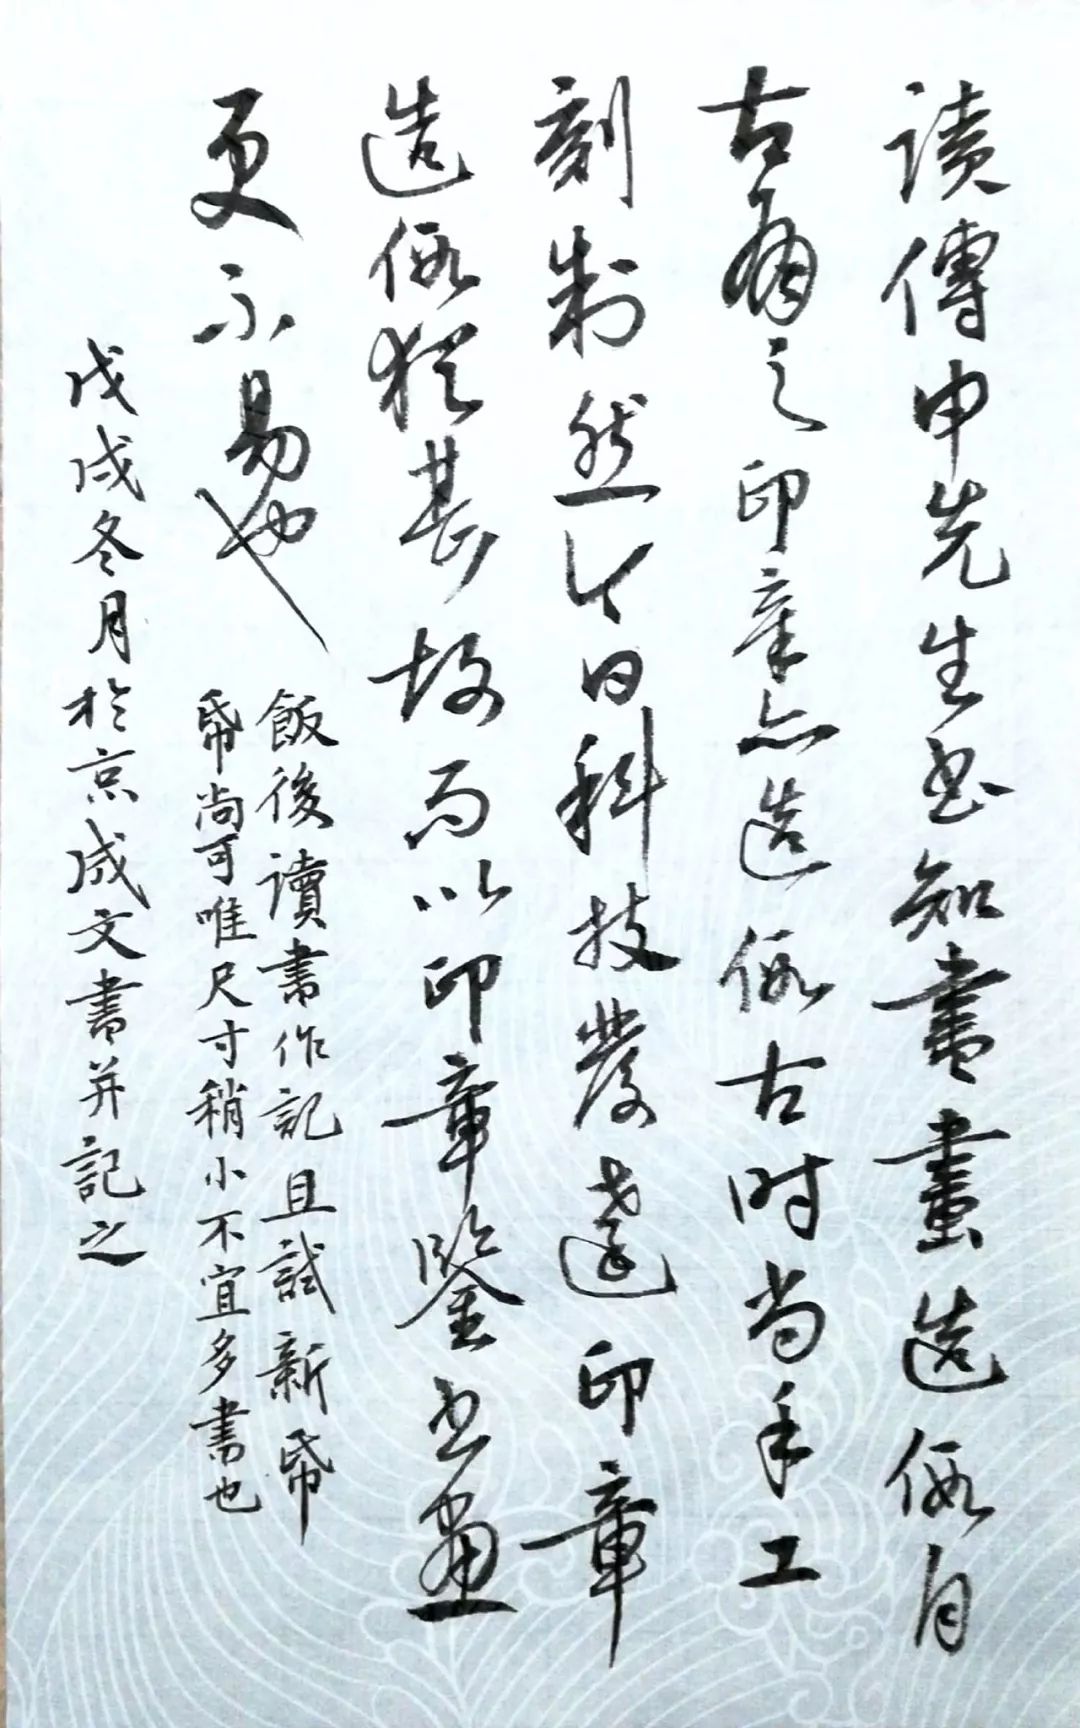 读傳申先生书知書畫造假自
古有之印章亦造假古时尚手工
刻制然今日科技發達印章
造假猶甚故而以印章鑒书畫
更不易也
飯後讀書作記且試新帋
帋尚可唯尺寸稍小不宜多書也
戊戌冬月於京成文書并記之